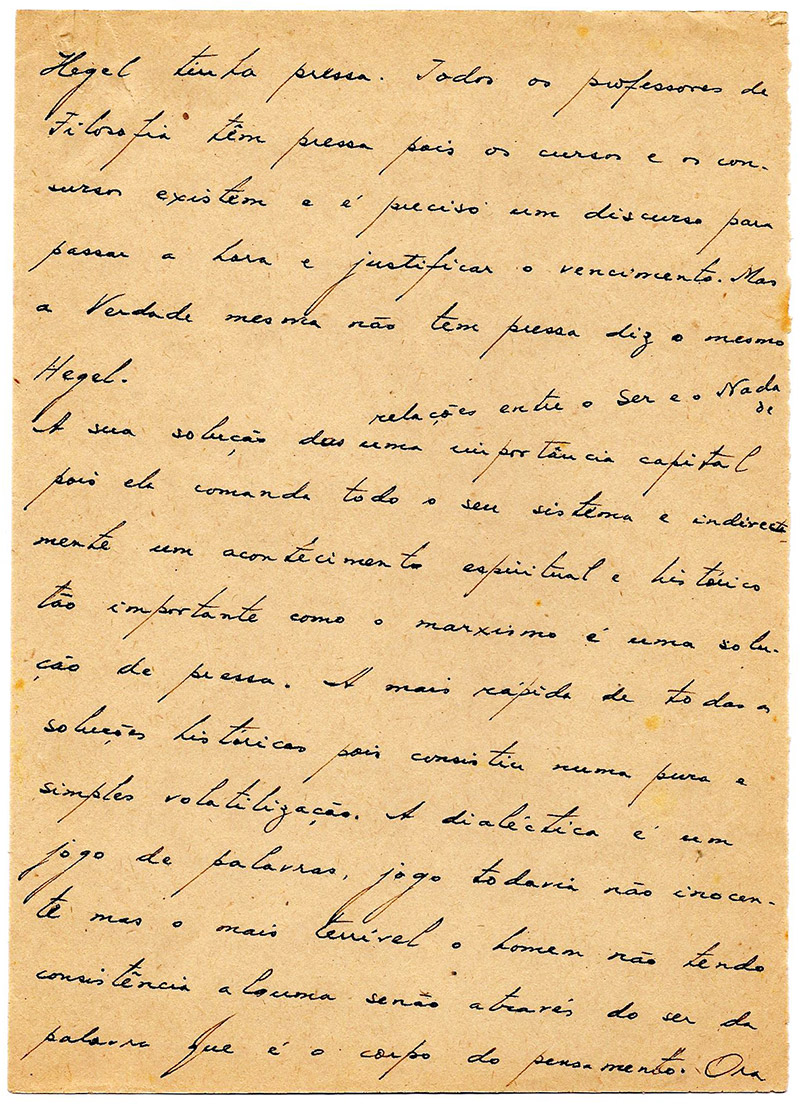 Hegel tinha pressa. Todos os professores de
Filosofia têm pressa pois os cursos e os con-
cursos existem e é preciso um discurso para
passar a hora e justificar o vencimento. Mas
a Verdade mesma não tem pressa diz o mesmo
Hegel.
relações entre o Ser e o Nada
de
A sua solução das uma importância capital
pois ela comanda todo o seu sistema e indirecta-
mente um acontecimento espiritual e histórico
tão importante como o marxismo é uma solu-
ção de pressa. A mais rápida de todas as
soluções históricas pois consistiu numa pura e
simples volatilização. A dialéctica é um
jogo de palavras, jogo todavia não inocen-
te mas o mais terrível o homem não tendo
consistência alguma senão através do ser da
palavra que é o corpo do pensamento. Ora